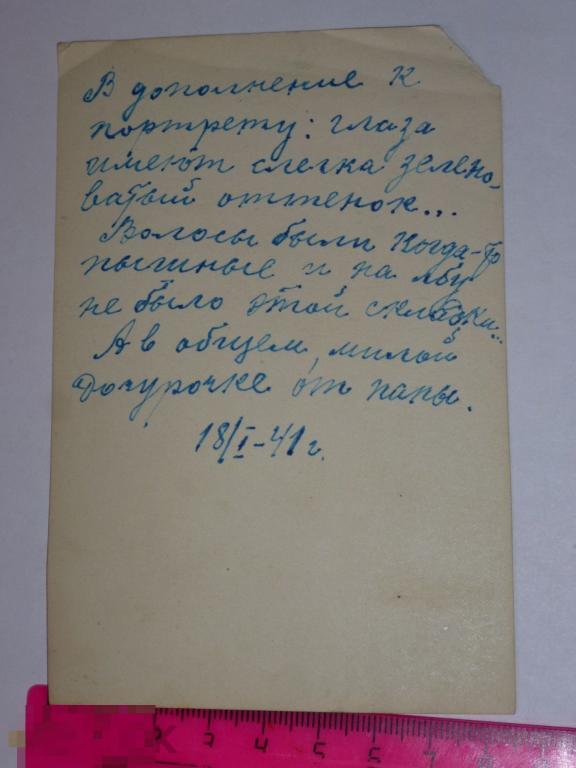 В дополнение к
портрету: глаза
имеют слегка зелено-
ватый оттенок...
Волосы были когда-то
пышные и на лбу
не было этой складки...
А в общем, милой
дочурочке от папы.
18/I-41 г.
3 4 5 6 7 8